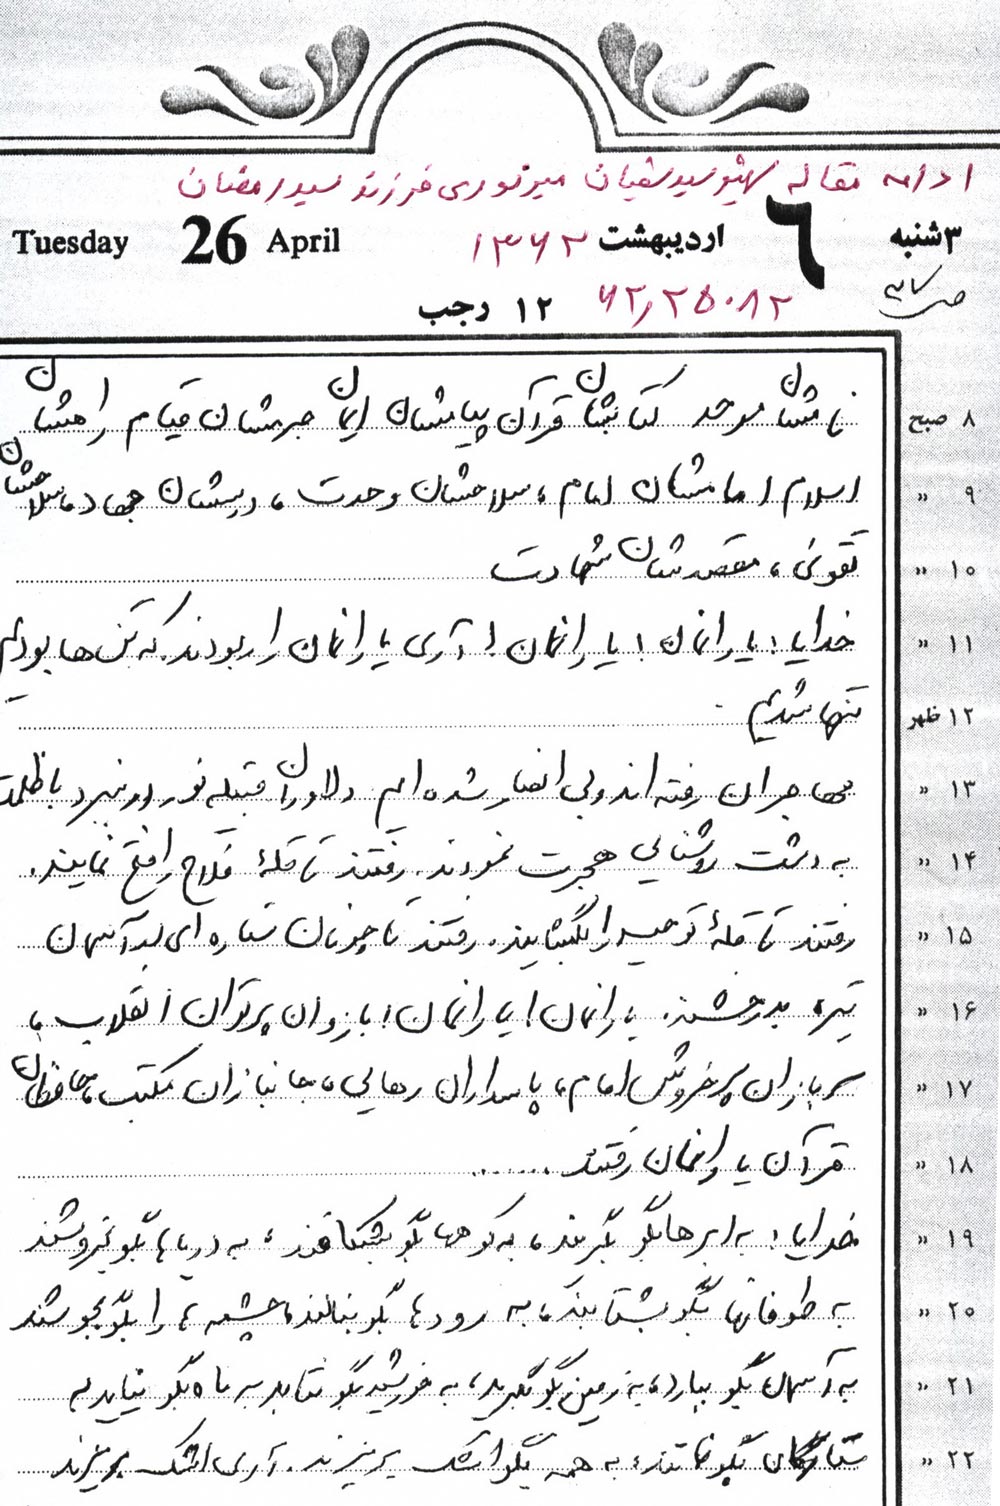 ادامه مقاله شهید سید سفیان میرنوری فرزند سید رمضان
Tuesday 26 April ۶ اردیبهشت ۱۳۶۲ ۳شنبه
۱۲ رجب ۶۲٫۲۵۰۸۲ ص ۲۷
۸ صبح نامشان موحد کتابشان قرآن پیامشان ایمان جرمشان قیام راهشان
۹ " اسلام امامشان امام، سلاحشان وحدت، درسشان جهاد، سلاحشان
۱۰ " تقوی، مقصدشان شهادت
۱۱ " خدایا! یارانمان! یارانمان! آری یارانمان را ربودند. که تنها بودیم
۱۲ ظهر تنها شدیم.
۱۳ " مهاجران رفته اند و بی انصار شده ایم دلاوران قبیله نور در نبرد با ظلمت
۱۴ " به دشت روشنایی هجرت نمودند. رفتند تا قلهٔ فلاح را فتح نمایند.
۱۵ " رفتند تا قلهٔ توحید را بگشایند. رفتند تا چونان ستاره ای بر آسمان
۱۶ " تیره بدرخشند. یارانمان! یارانمان! بازوان پرتوان انقلاب،
۱۷ " سربازان پرخروش امام، پاسداران رهایی، جانبازان مکتب، حافظان
۱۸ " قرآن یارانمان رفتند......
۱۹ " خدایا! به ابرها بگو بگریند، به کوهها بگو بشکافند، به دریاها بگو بخروشند
۲۰ " به طوفانها بگو بشتابند، به رودها بگو بنالند، چشمه ها را بگو بجوشند
۲۱ " به آسمان بگو ببارد، به زمین بگو بگرید، به خورشید بگو نتابد به ماه بگو نیاید به
۲۲ " ستارگان بگو نتابند، به همه بگو اشک بریزند. آری اشک بریزند